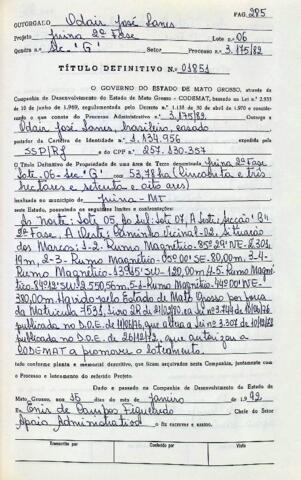 PAG. 285
OUTORGADO Odair José Lanes
Projeto Juina 2ª Fase Lote n.o 06
Quadra n.o Sec. 'G' Setor Processo n.o 3.175/82
TÍTULO DEFINITIVO N.o 01851
O GOVERNO DO ESTADO DE MATO GROSSO, através da
Companhia de Desenvolvimento do Estado de Mato Grosso - CODEMAT, com base na Lei n.o 2.933
de 10 de junho de 1969, regulamentada pelo Decreto n.o 1.138 de 30 de abril de 1970 e considerando
o que consta do Processo Administrativo n.o 3.175/82 Outorga a
Odair José Lanes, brasileiro, casado
portador da Carteira de Identidade n.o 1.134.956 expedida pela
SSP/PR e do CPF n.o 257.130.357
O Título Definitivo de Propriedade de uma área de Terra denominada Juina 2ª Fase
Lote 06 - Sec "G" com 53,78 ha (Cincoenta e três
hectares e setenta e oito ares)
localizada no município de Juina - MT
neste Estado, possuindo os seguintes limites e confrontações:
Ao Norte: Lote 05, Ao Sul: Lot 07, A Leste: Secção "B"
2ª Fase, A Oeste: Caminho Vicinal-02, Situação
dos Marcos: 1-2- Rumo Magnético - 85º29' NE - 2.301
19m, 2-3- Rumo Magnético - 05º00' SE - 80,00m, 3-4-
Rumo Magnético - SW - 120,00m 4-5- Rumo Magné-
tico - 84º12' SW - 2.550,56m, 5-1- Rumo Magnético - NE -
380,00m. Havido pelo Estado de Mato Grosso por força
da Matricula 7531, Livro 2R de
publicada no D.O.E. de que altera a Lei nº 3.307 de
publicada no D.O.E. de 26/12/72, que autorizou a
CODEMAT a promover o loteamento.
tudo conforme planta e memorial descritivo, que ficam arquivados nesta Companhia, juntamente com
o Processo e loteamento do referido Projeto.
Dado e passado na Companhia de Desenvolvimento do Estado de
Mato Grosso, aos 15 dias do mês de janeiro de 1992.
Eu Enir de Campos Figueiredo Chefe do Setor
Apoio Administrativo o fiz escrever e assino.
Transcrito por Conferido por Visto